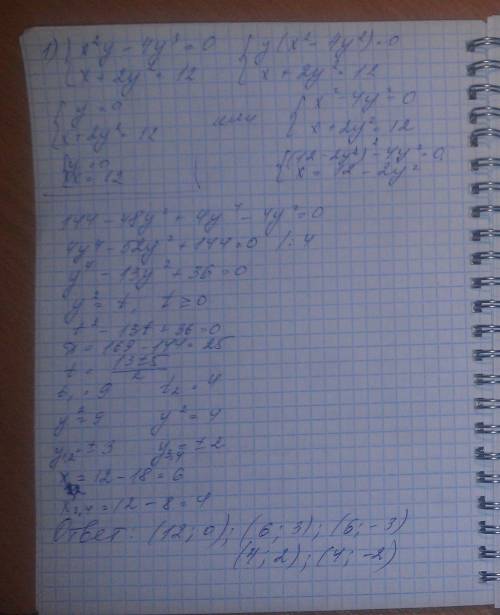 1) { x²y - 4y³ = 0 { y(x² - 4y²) = 0
{ x + 2y² = 12 { x + 2y² = 12
{ y = 0 или { x² - 4y² = 0
{ x + 2y² = 12 { x + 2y² = 12
{ y = 0 { (12 - 2y²)² - 4y² = 0
{ x = 12 { x = 12 - 2y²
144 - 48y² + 4y⁴ - 4y² = 0
4y⁴ - 52y² + 144 = 0 /:4
y⁴ - 13y² + 36 = 0
y² = t, t ≥ 0
t² - 13t + 36 = 0
D = 169 - 144 = 25
t = (13±5)/2
t₁ = 9 t₂ = 4
y² = 9 y² = 4
y₁,₂ = ±3 y₃,₄ = ±2
= 12 - 18 = 6
x₃,₄ = 12 - 8 = 4
Ответ: (12; 0); (6; 3); (6; -3)
(4; 2); (4; -2)